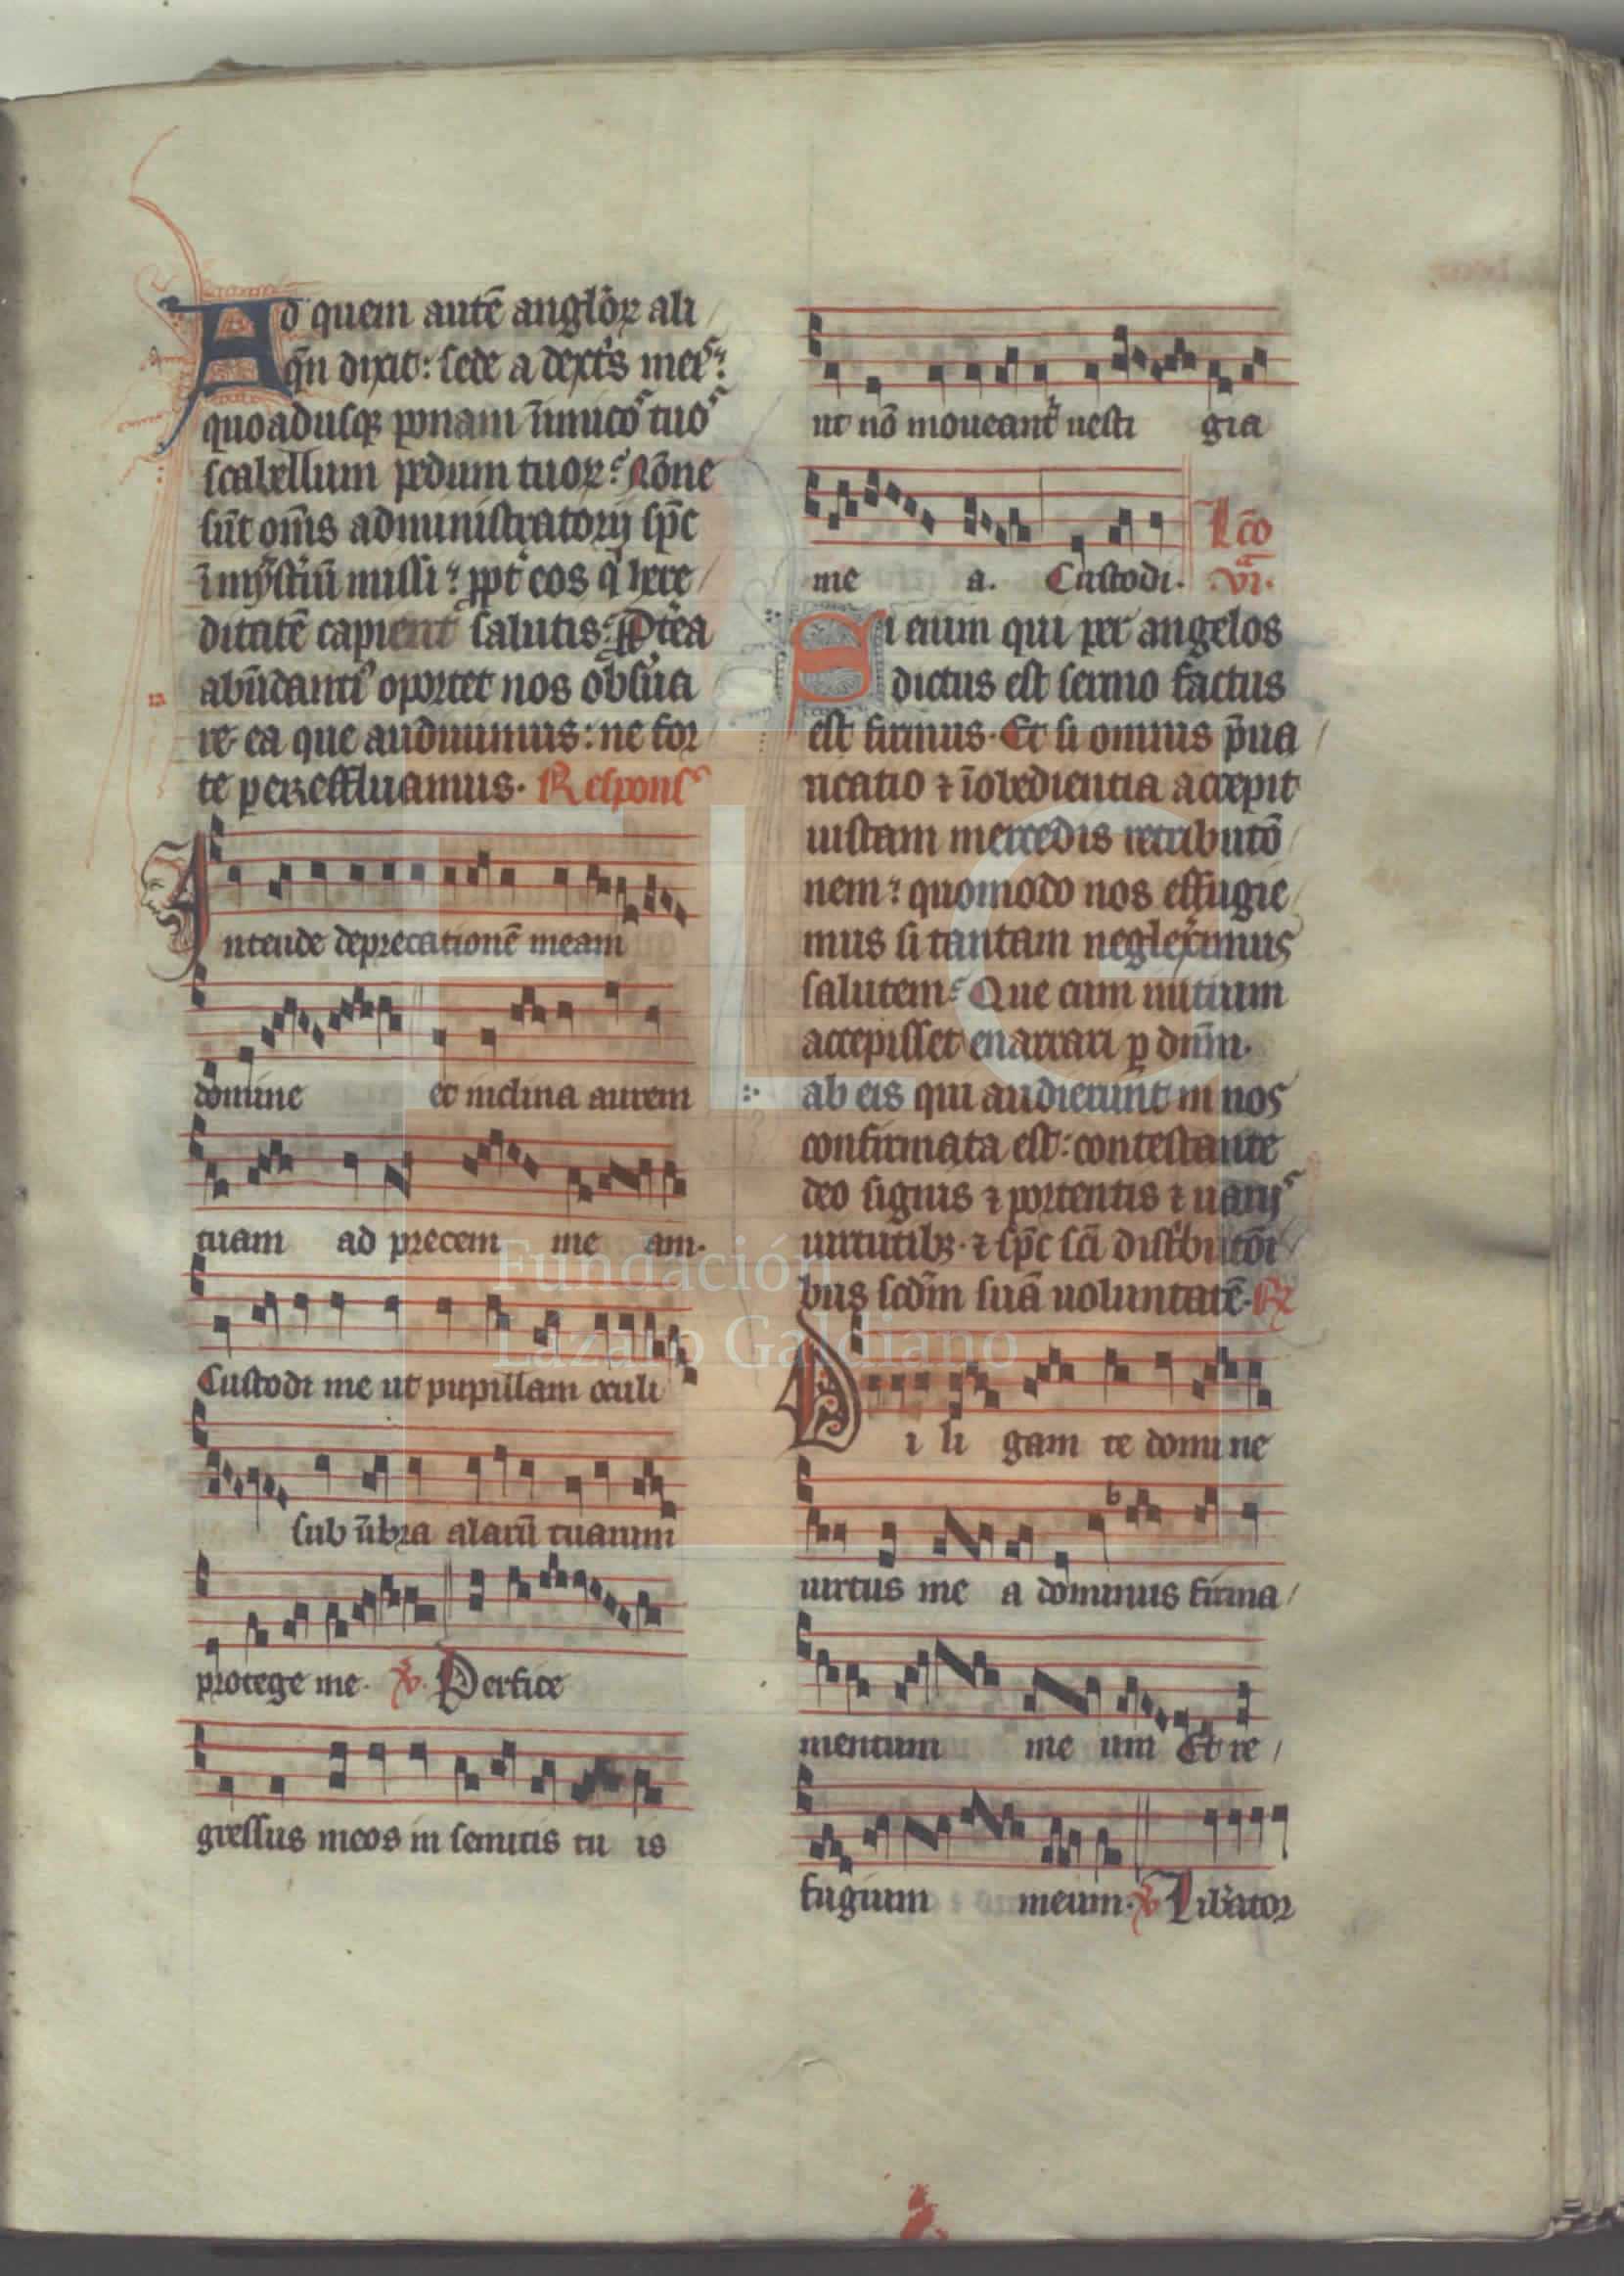 Ad quem autē anglōꝝ ali
qn̄ dixit: sede a dextˢ meis:
quoadusqꝫ ponam īimicoˢ tuoˢ
scabellum pedum tuoꝝ? Nōne
sūt om̄s administratorij sp̄c
ī mysteriū missi: ꝓpt eos q̇ here
ditatē capient salutis? Ꝓtea
abūdantiˢ oportet nos obserua
re ea que audiuimus: ne for
te pereffluamus. Responsˢ
Intende deprecationē meam
domine et inclina aurem
tuam ad precem me am.
Custodi me ut pupillam oculi
sub ūbra alarū tuarum
protege me. ℣. Perfice
gressus meos in semitis tu is
ut nō moueantᷣ uesti gia
me a. Custodi. Lc̄o
.vi.
Si enim qui per angelos
dictus est sermo factus
est firmus. Et si omnis p̄ua
ricatio ⁊ īobedientia accepit
iustam mercedis retributō
nem: quomodo nos effugie
mus si tantam neglexerimus
salutem? Que cum initium
accepisset enarrari ꝑ dn̄m.
ab eis qui audierunt in nos
confirmata est: contestante
deo signis ⁊ portentis ⁊ uarijˢ
uirtutibꝫ. ⁊ sp̄c sc̄i distributōi
bus scd̄m suā uoluntatē. ℟
Di li gam te domine
uirtus me a dominus firma
mentum me um Et re
fugium meum. ℣ Lib̄ator
Fundación
Lázaro Galdiano
FLG